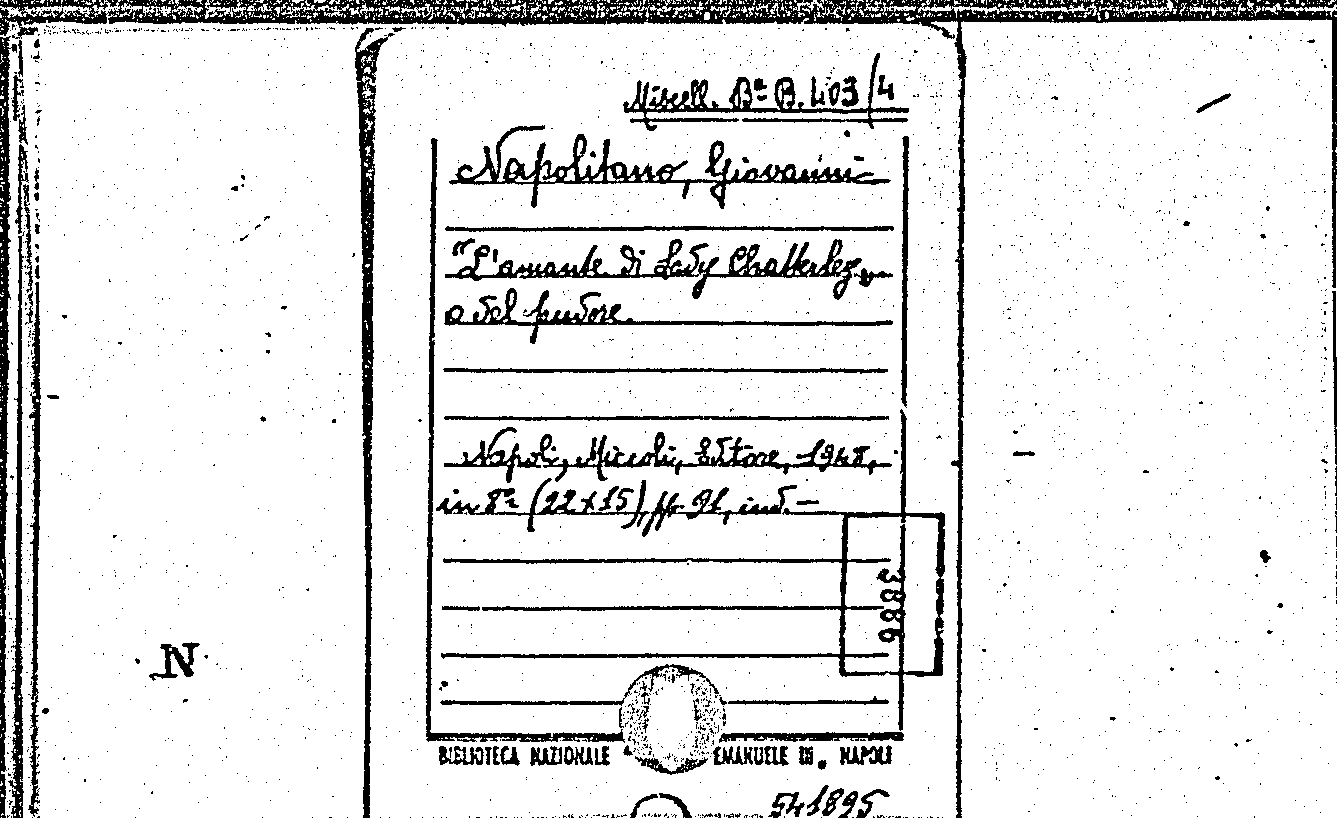 Miscell. Bª B. 403/4
Napolitano, Giovanni
"L'amante di Lady Chatterley„
o del pudore.
Napoli, Miccoli, Editore, 1948,
in 8º (22 x 15), pp. 91, ind. —
3886
N
BIBLIOTECA NAZIONALE " EMANUELE III„ NAPOLI
541895